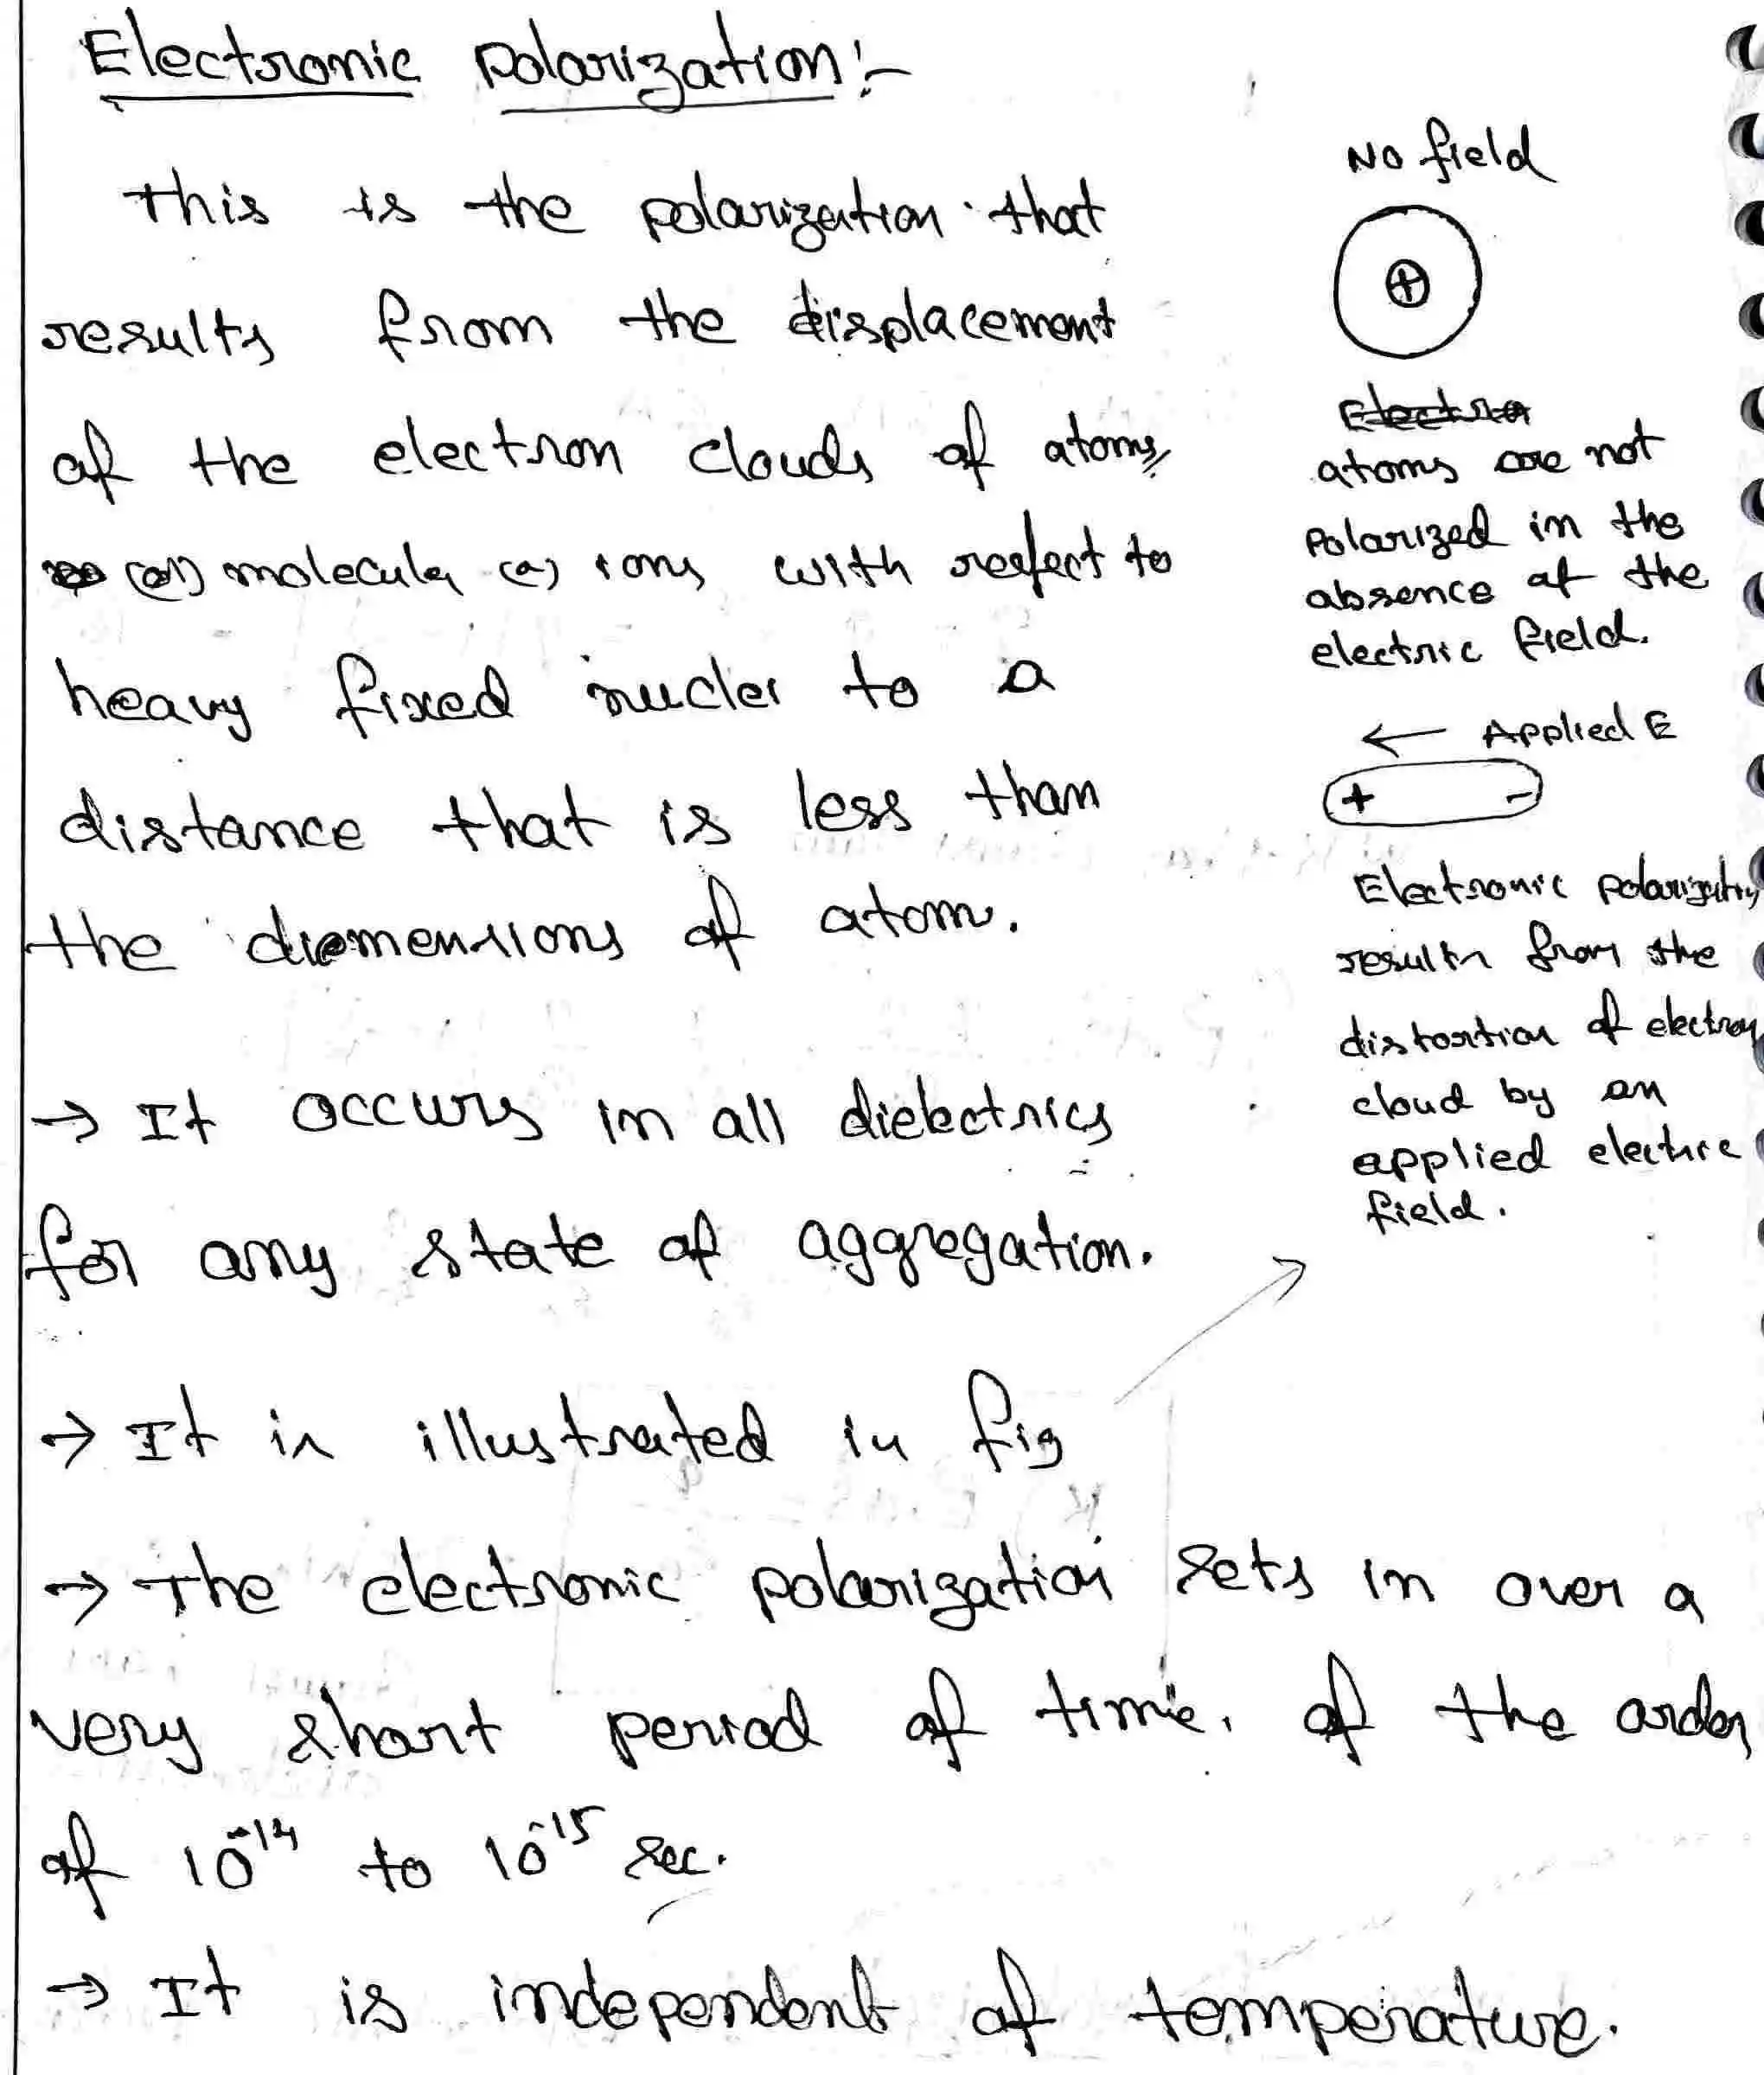 Electronic Polarization:-
This is the polarization that
results from the displacement
of the electron clouds of atoms,
(or) molecules (or) ions with respect to
heavy fixed nuclei to a
distance that is less than
the diemensions of atom.
→ It occurs in all dielectrics
for any state of aggregation.
→ It is illustrated in fig
→ The electronic polarization sets in over a
very short period of time, of the order
of 10^-14 to 10^-15 sec.
→ It is independent of temperature.
No field
+
Electro
atoms are not
Polarized in the
absence of the
electric field.
← Applied E
+ -
Electronic polarization
results from the
distortion of electron
cloud by an
applied electric
field.